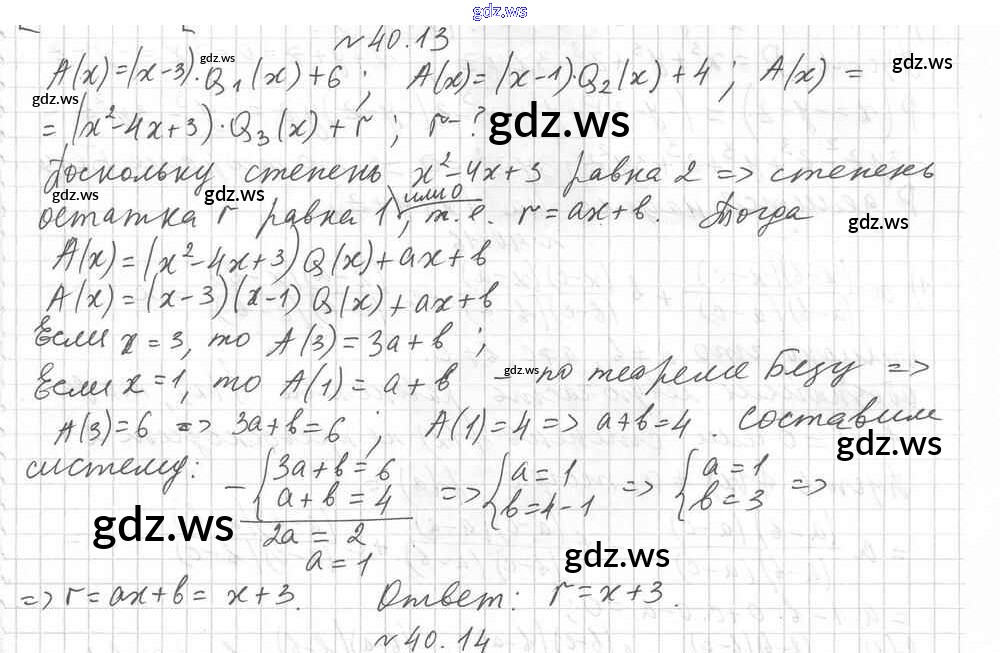 gdz.ws
№40.13
A(x)=(x-3)·Q₁(x)+6; A(x)=(x-1)·Q₂(x)+4; A(x)=
gdz.ws gdz.ws gdz.ws
=(x²-4x+3)·Q₃(x)+r; r-?
gdz.ws
Поскольку степень x²-4x+3 равна 2 => степень
gdz.ws gdz.ws или 0
остатка r равна 1, т.е. r=ax+b. Тогда
gdz.ws
A(x)=(x²-4x+3)Q(x)+ax+b
A(x)=(x-3)(x-1)Q(x)+ax+b
Если x=3, то A(3)=3a+b;
Если x=1, то A(1)=a+b - по теореме Безу =>
gdz.ws
A(3)=6 => 3a+b=6; A(1)=4 => a+b=4. Составим
gdz.ws
систему: - {3a+b=6 => {a=1 => {a=1 =>
a+b=4 b=4-1 b=3
gdz.ws
2a=2
gdz.ws
a=1
=> r=ax+b=x+3. Ответ: r=x+3.
№40.14